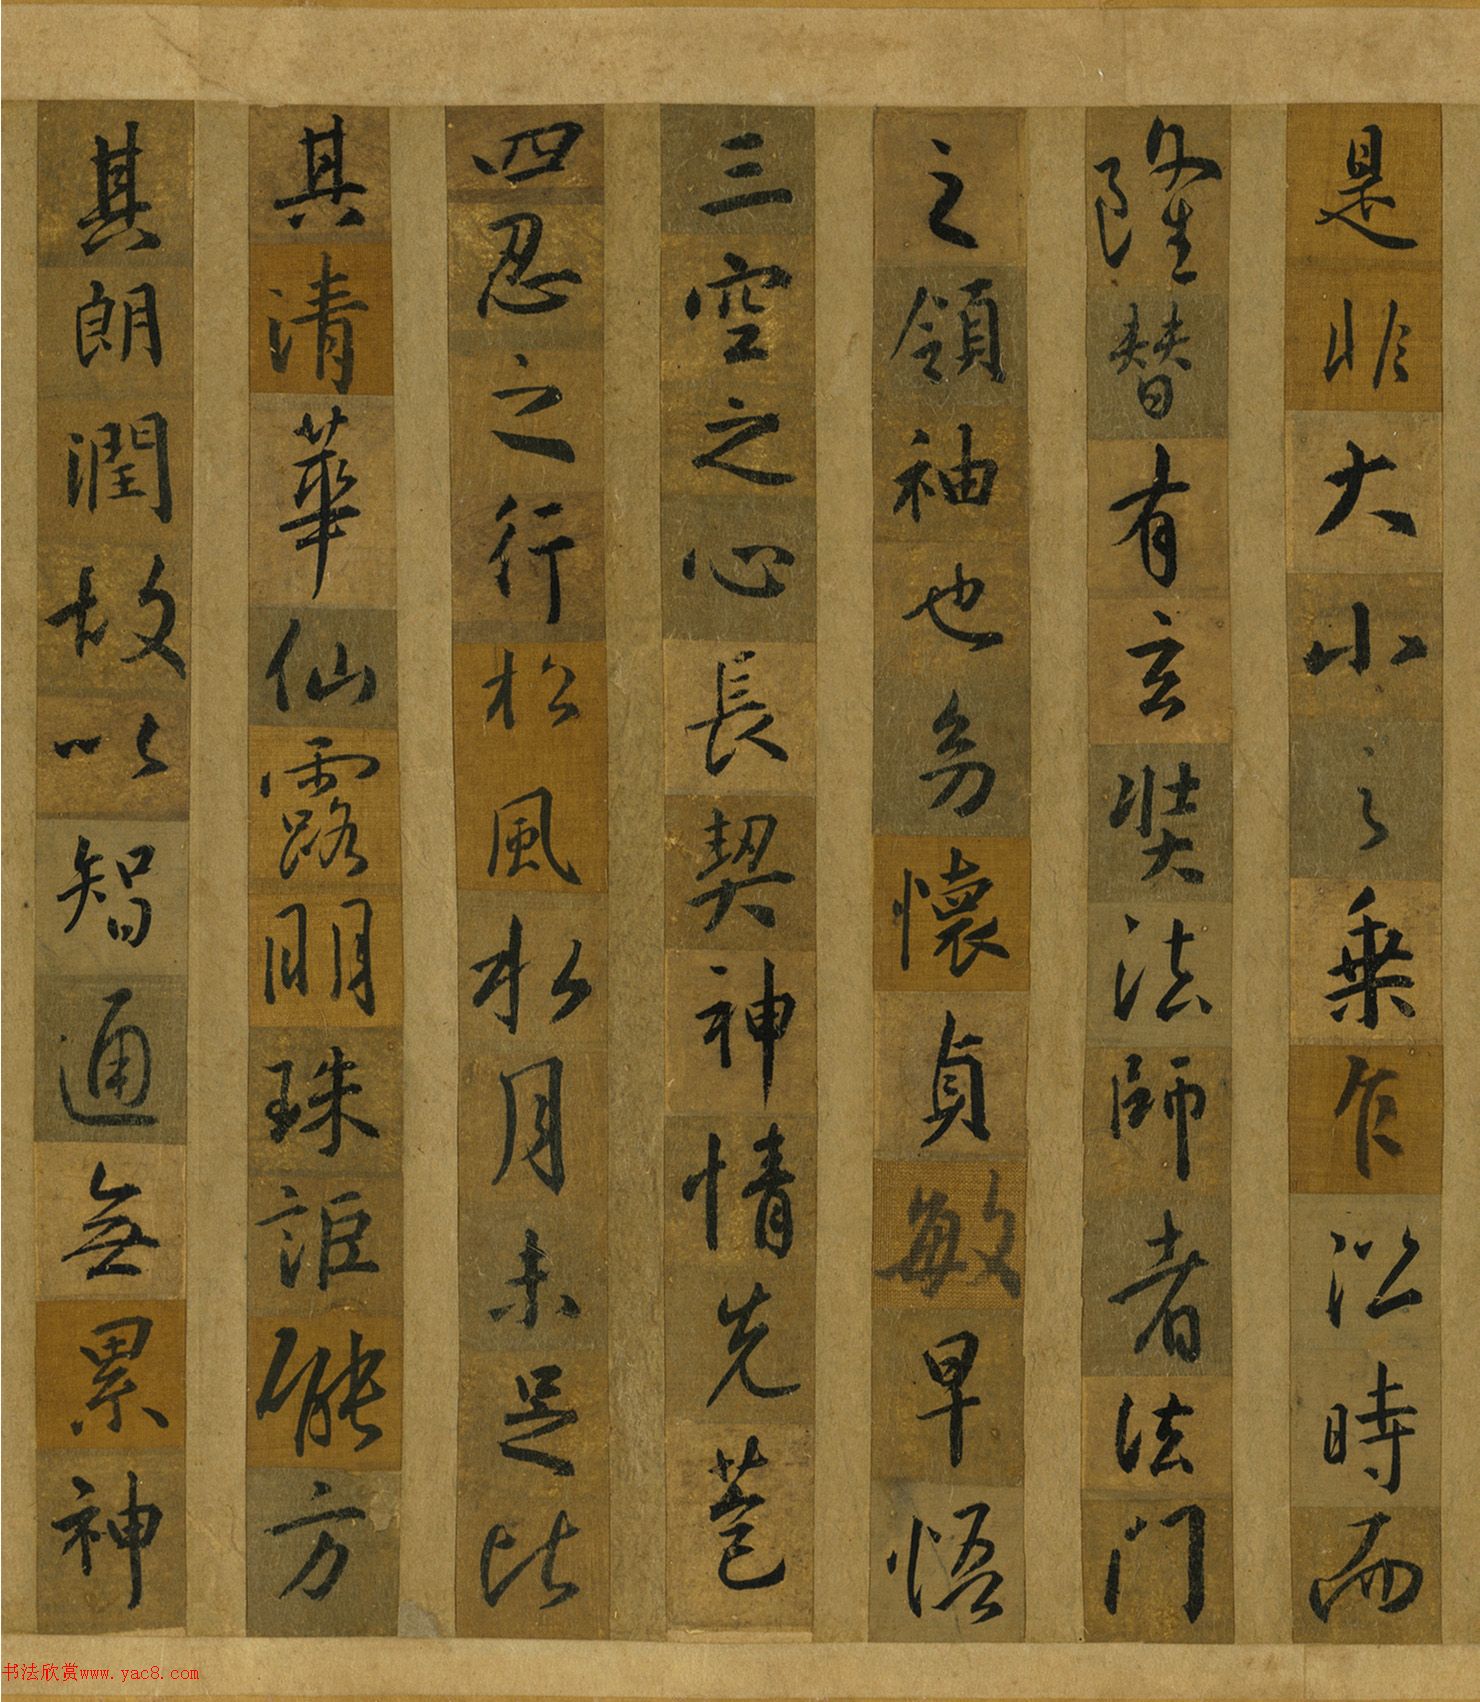 是非大小之乘乍沿時而
隆替有玄奘法師者法門
之領袖也幼懷貞敏早悟
三空之心長契神情先苞
四忍之行松風水月未足比
其清華仙露明珠詎能方
其朗潤故以智通無累神
书法欣赏www.yac8.com